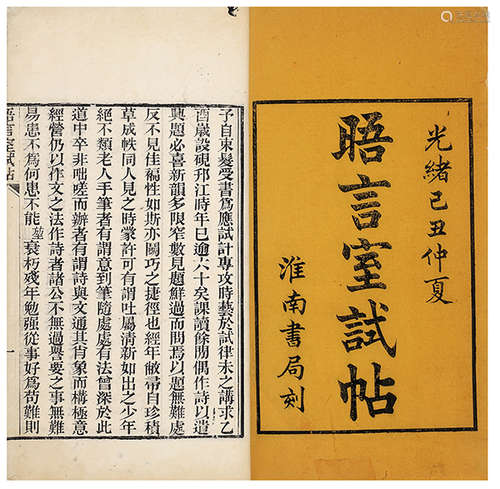 光緒己丑仲夏
晤言室試帖
淮南書局刻
予自束髮受書爲應試計專攻時藝於試律未之講求乙
酉歲設硯邗江時年已逾六十矣課讀餘閒偶作詩以遣
興題必喜新韻多限窄數見題鮮過而問焉以題無難處
反不見佳褊性如斯亦鬬巧之捷徑也經年敝帚自珍積
草成帙同人見之時蒙許可有謂吐屬清新如出之少年
絕不類老人手筆者有謂意到筆隨處處有法曾深於此
道中卒非咄嗟而辦者有謂詩與文通其肖象而構極意
經營仍以作文之法作詩者諸公不無過譽要之事無難
易患不爲何患不能堃衰朽殘年勉强從事好爲苟難則
晤言室試帖
一